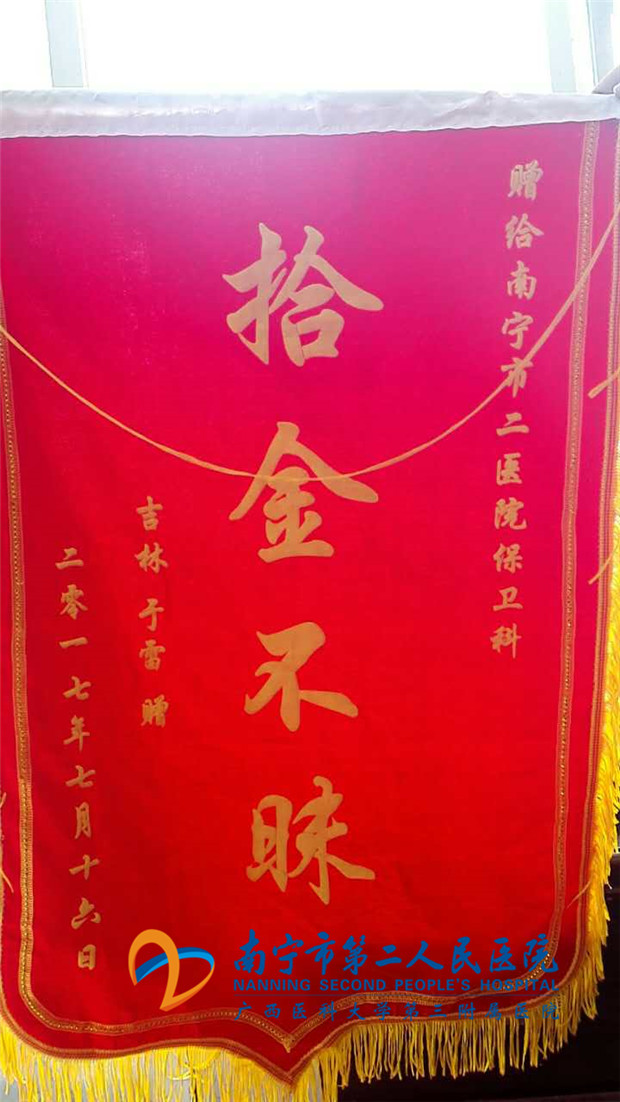 赠给南宁市二医院保卫科
拾金不昧
吉林 于雷 赠
二零一七年七月十六日
南宁市第二人民医院
NANNING SECOND PEOPLE'S HOSPITAL
广西医科大学第三附属医院